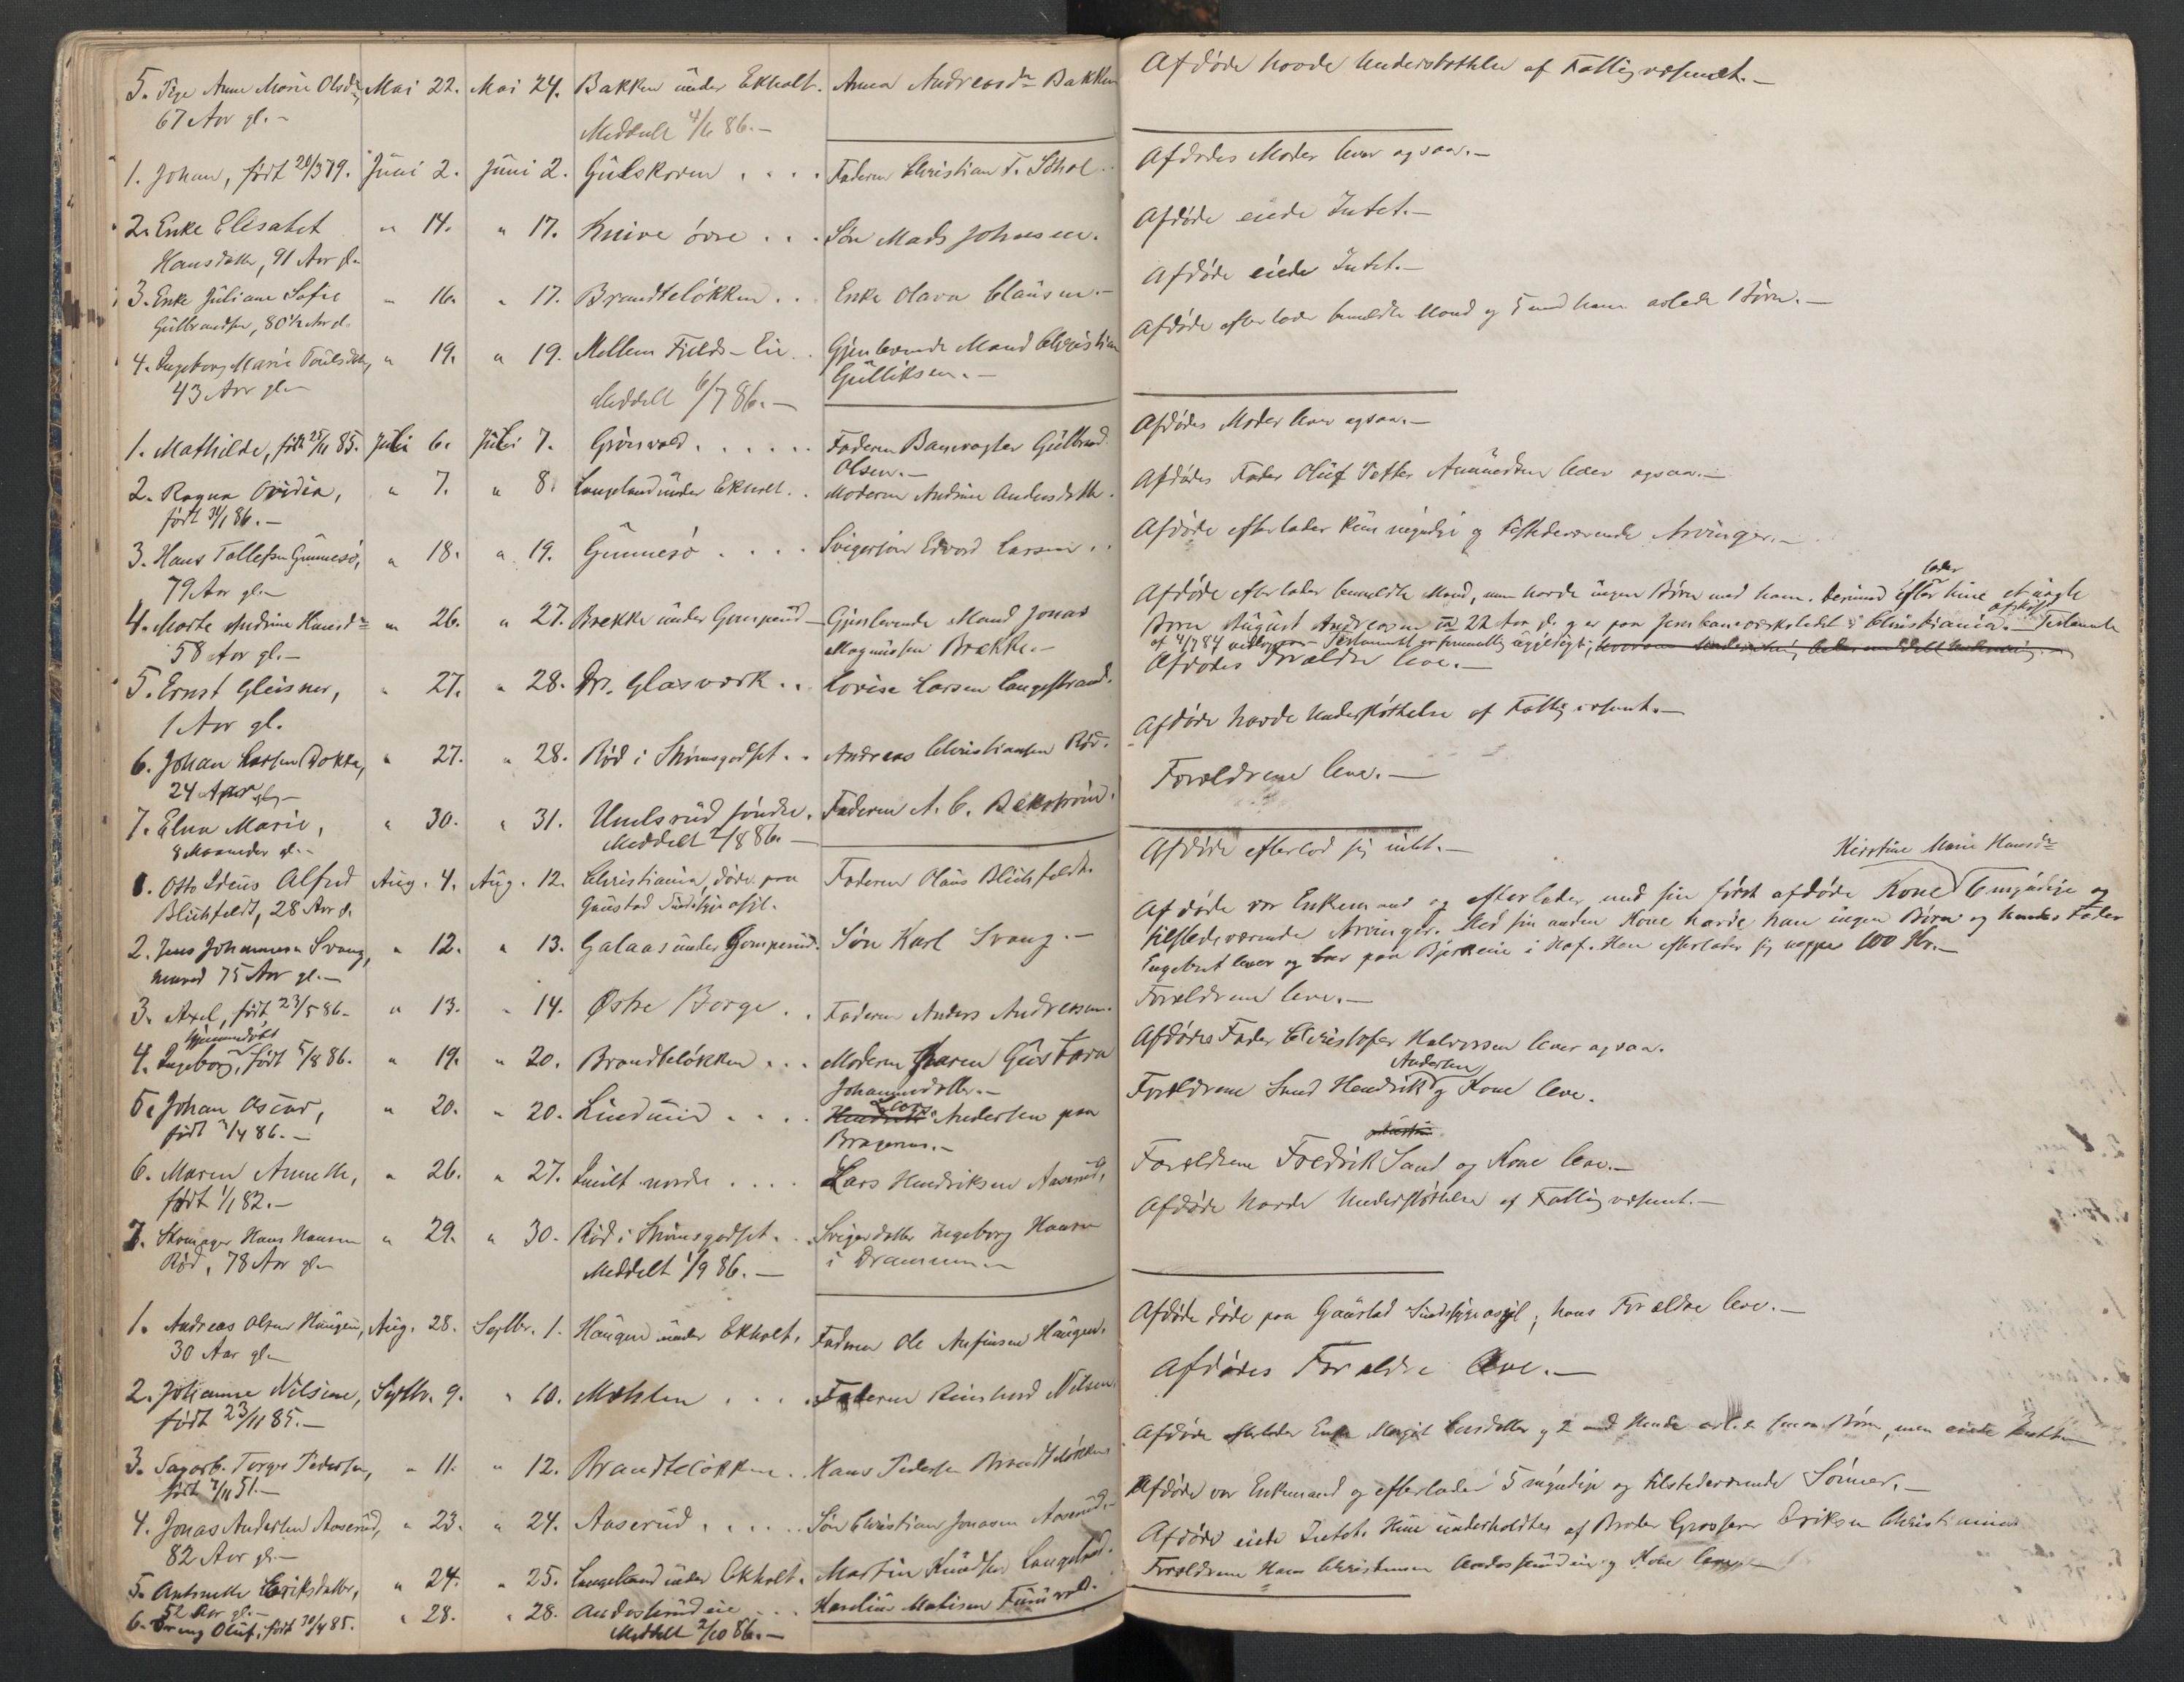 5. Pige Anne Marie Olsdr, Mai 22. Mai 24. Bakken under Ekholt. Anna Andreasdr Bakken
67 Aar gl.-
Meddelt 4/6 86.-
Afdøde havde Understøttelse af Fattigvæsenet.-
1. Johan, født 20/3 79. Juni 2. Juni 2. Gulskoven . . . . Faderen Christian F. Schol
Afdødes Moder lever ogsaa.-
2. Enke Elisabet " 14. " 17. Knive øvre . . . Søn Mads Johnsen.
Hansdatter, 91 Aar gl.-
Afdøde eiede Intet.-
3. Enke Juliane Sofie " 16. " 17. Brandteløkken . . Enke Olava Clausen.-
Gulbrandsen, 80 1/2 Aar gl.
Afdøde eiede Intet.-
4. Ingeborg Marie Poulsdtr, " 19. " 19. Mellem Fjelds-Eie . . Gjenlevende Mand Christian
43 Aar gl.- Gulliksen.-
Meddelt 6/7 86.-
Afdøde efterlader bemeldte Mand og 5 med ham avlede Børn.-
1. Mathilde, født 25/11 85. Juli 6. Juli 7. Grønvold . . . . . . Faderen Banevogter Gulbrand
Olsen.-
Afdødes Moder lever ogsaa.-
2. Ragna Ovidia, " 7. " 8. Langeland under Ekholt. . Moderen Andrine Andersdatter.
født 31/1 86.-
Afdødes Fader Oluf Petter Amundsen lever ogsaa.-
3. Hans Tollefsen Gunnesø, " 18. " 19. Gunnesø . . . . Svigersøn Edvard Larsen . .
79 Aar gl.-
Afdøde efterlader kun myndige og tilstedeværende Arvinger.-
4. Marte Andrine Hansdr " 26. " 27. Brekke under Gomperud - Gjenlevende Mand Jonas
58 Aar gl.- Magnussen Brekke.-
lader
Afdøde efterlader bemeldte Mand, men havde ingen Børn med ham. Derimod efter hine et uægte
Barn August Andreasen 22 Aar gl. og er paa Jernbaneværkstedet i Christiania.- Testamente
afskrift
af 4/7 84
5. Ernst Gleisner, " 27. " 28. Dr. Glasværk . . Lovise Larsen Langestrand.
1 Aar gl.
Afdødes Forældre leve.-
6. Johan Larsen Dokka, " 27. " 28. Rød i Strømsgodset . . Andreas Christiansen Rød.
24 Aar gl.-
Afdøde havde Understøttelse af Fattigvæsenet.-
7. Elna Marie, " 30. " 31. Unelsrud søndre. Faderen A. C. Bekstrøm.
8 Maaneder gl.-
Meddelt 2/8 86.-
Forældrene leve.-
1. Otto Ideus Alfred Aug. 4. Aug. 12. Christiania, døde paa Faderen Olaus Blichfeldt.
Blichfeldt, 28 Aar gl. Gaustad Sindsygeasyl.
Afdøde efterlod sig intet.-
Kirstine Marie Hansdr
2. Jens Johannesen Svang, " 12. " 13. Galaas under Gomperud. Søn Karl Svang.-
75 Aar gl.-
Afdøde var Enkemand og efterlader med sin først afdøde Kone 6 myndige og
tilstedeværende Arvinger. Med sin anden Kone havde han ingen Børn og hendes Fader
Engebret lever og boer paa Bjerkeeie i Hof. Han efterlader sig neppe 100 Kr.-
3. Axel, født 23/5 86.- " 13. " 14. Østre Borge . . Faderen Anders Andreasen.
Forældrene leve.-
hjemmedøbt
4. Ingeborg, født 5/8 86. " 19. " 20. Brandteløkken . . . Moderen Karen Gustava
Johannesdatter.-
Afdødes Fader Christofer Halvorsen lever ogsaa.
5. Johan Oscar, " 20. " 20. Lindum . . . . Lars Andersen paa
født 2/4 86.- Bragernes.-
Andersen
Forældrene Hendrik og Kone leve.
6. Maren Annette, " 26. " 27. Tuift nordre . . . . Lars Hendriksen Aaserud,
født 1/1 82.-
Forældrene Fredrik Sand og Kone leve.-
7. Skomager Hans Hansen " 29. " 30. Rød i Strømsgodset . . Svigerdatter Ingeborg Hansen
Rød, 78 Aar gl.- i Drammen.-
Meddelt 1/9 86.-
Afdøde havde Understøttelse af Fattigvæsenet.-
1. Andreas Olsen Haugen, Aug. 28. Septbr. 1. Haugen under Ekholt. Faderen Ole Anfinsen Haugen.
30 Aar gl.-
Afdøde døde paa Gaustad Sindsygeasyl; hans Forældre leve.-
2. Johanne Nilsine, Septbr. 9. " 10. Mæhlen . . . . Faderen Reinhard Nilsen.
født 23/11 85.-
Afdødes Forældre leve.-
3. Sagarb. Torger Pedersen, " 11. " 12. Brandteløkken . . Hans Pedersen Brandteløkken
født 7/11 51.-
Afdøde efterlader Enke Margit Larsdatter og 2 med hende avlede Børn, men eiede Intet
4. Jonas Andersen Aaserud, " 23. " 24. Aaserud . . . . . Søn Christian Jonasen Aaserud.-
82 Aar gl.-
Afdøde var Enkemand og efterlader 5 myndige og tilstedeværende Sønner.-
5. Antonette Eriksdatter, " 24. " 25. Langeland under Ekholt. Martin Knudsen Langeland.
52 Aar gl.-
Afdøde eiede Intet. Hun underholdtes af Broder Grosserer Eriksen Christiania
6. Dreng Oluf, født 30/4 85. " 28. " 28. Andosrud eie . . . Karelius Matisen Furuvold.
Meddelt 2/10 86.-
Forældrene Hans Christensen og Kone leve.-